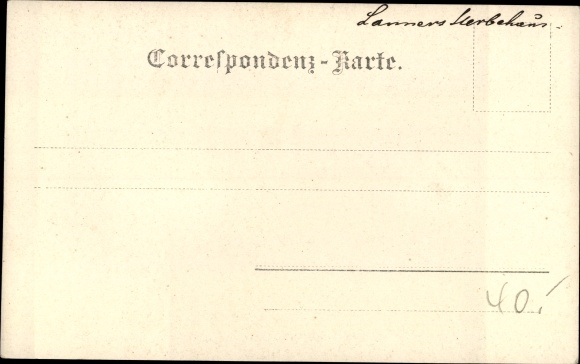 Lanners Sterbehaus
Correspondenz-Karte.
40.